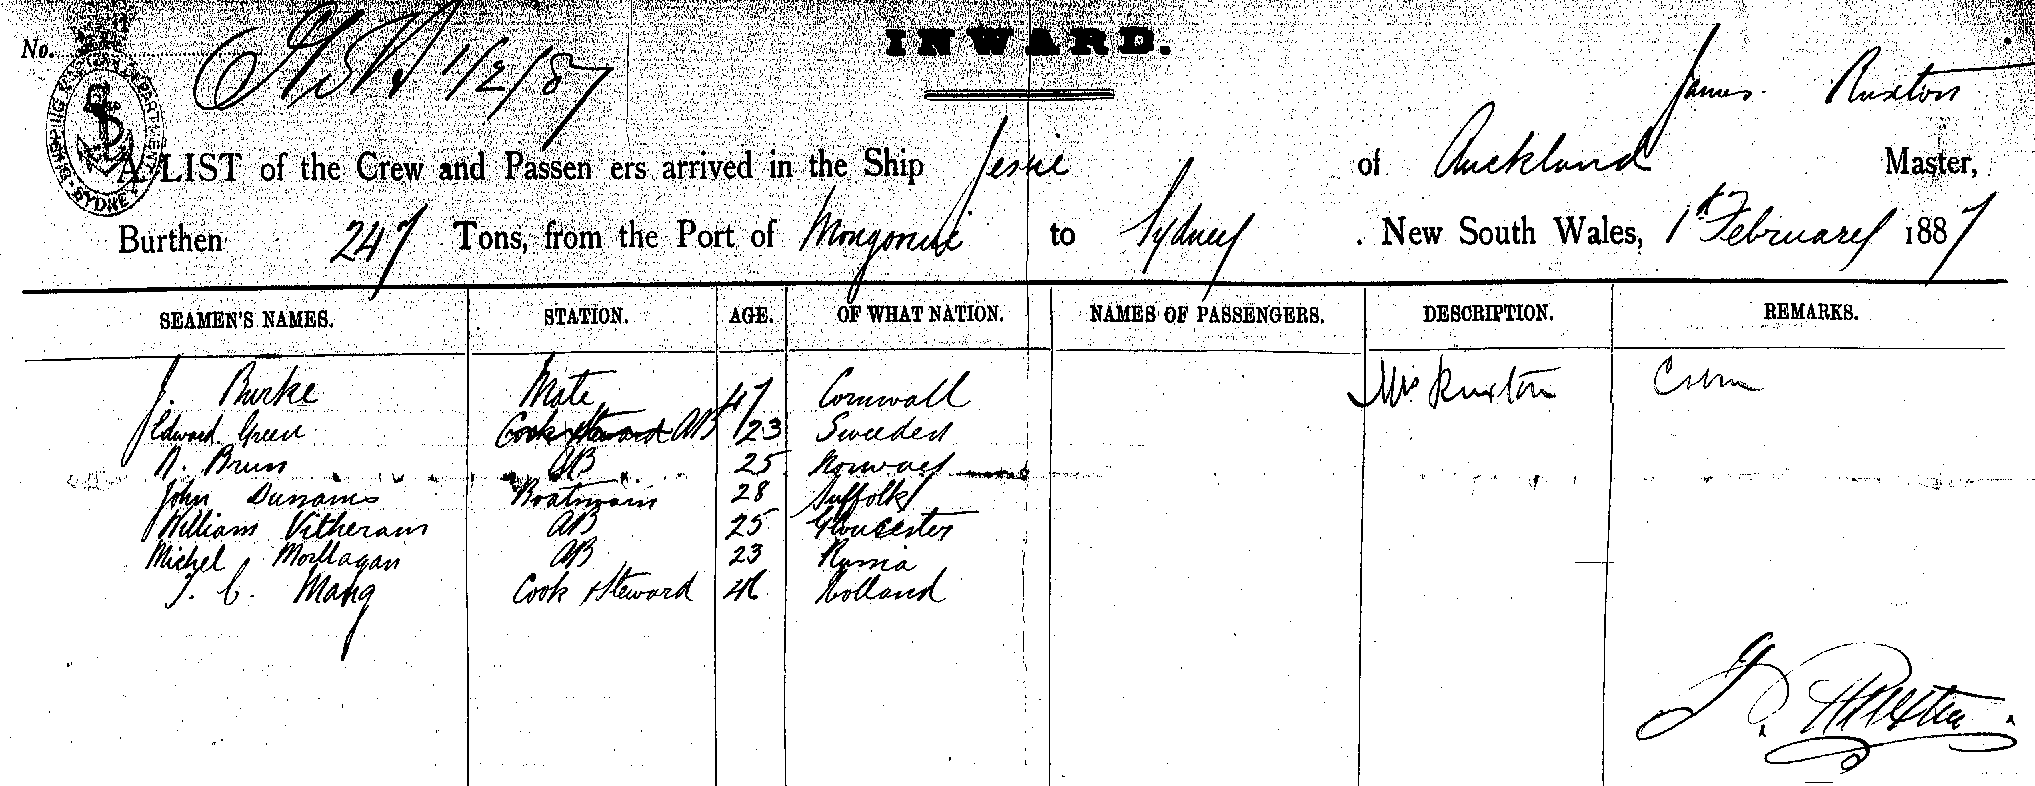 No.
1/2/87
INWARD.
SHIPPING SYDNEY
James Ruxton
A LIST of the Crew and Passen ers arrived in the Ship Jessie of Auckland Master,
Burthen 247 Tons, from the Port of Mongonui to Sydney . New South Wales, 1st February 1887
SEAMEN'S NAMES. STATION. AGE. OF WHAT NATION. NAMES OF PASSENGERS. DESCRIPTION. REMARKS.
J. Burke Mate 47 Cornwall Mrs Ruxton
Edward Green Cook Steward AB 23 Sweeden
N. Brun AB 25 Norway
John Boatswain 28 Suffolk
William AB 25 Gloucester
Michel AB 23 Russia
J. C. Mang Cook Steward Holland
J. Ruxton